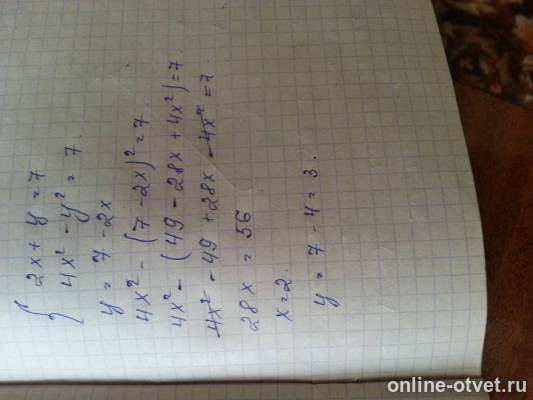 { 2x + y = 7
4x² - y² = 7.
y = 7 - 2x
4x² - (7 - 2x)² = 7.
4x² - (49 - 28x + 4x²) = 7.
4x² - 49 + 28x - 4x² = 7.
28x = 56
x = 2.
y = 7 - 4 = 3.
online-otvet.ru